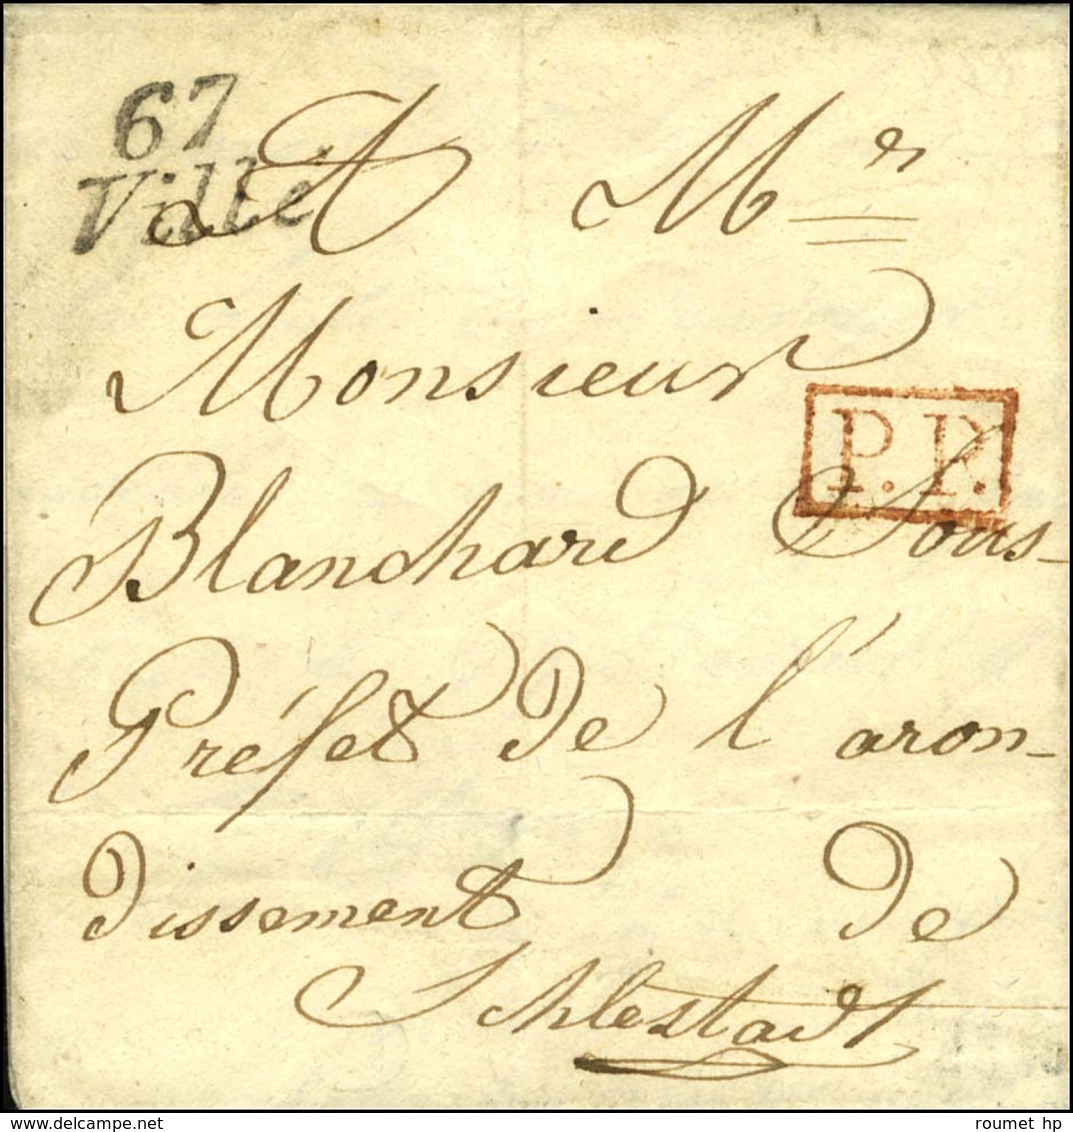 67
Villé
A Mr
Monsieur
P.P.
Blanchard Sous-
Préfet de l'aron-
dissement de
Schlestadt
www.delcampe.net
roumet hp